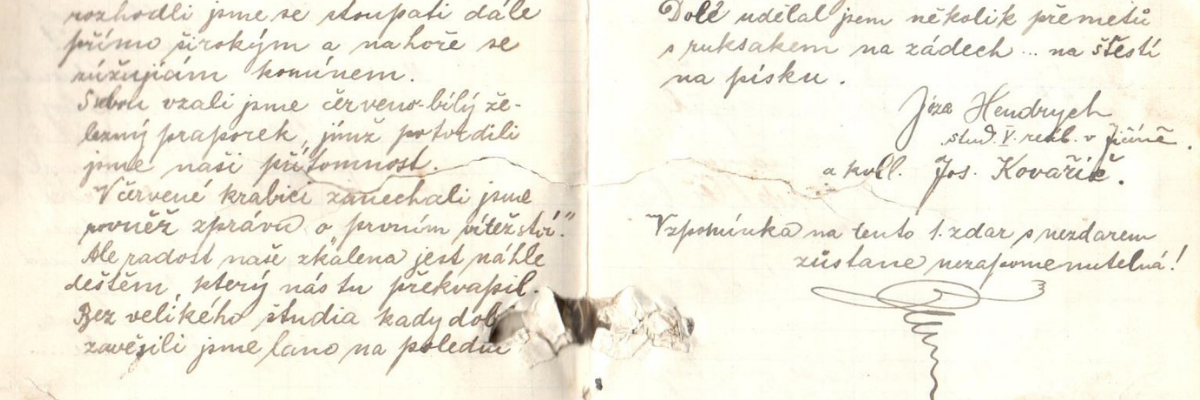 rozhodli jsme se stoupati dále
přímo širokým a nahoře se
zúžujícím komínem.
Sebou vzali jsme červeno-bílý že-
lezný praporek, jímž potvrdili
jsme naši přítomnost.
V červené krabici zanechali jsme
rovněž zprávu o prvním vítězství."
Ale radost naše zkalena jest náhle
deštěm, který nás tu překvapil.
Bez velikého studia kady dol
zavěsili jsme lano na polední
Dolé udělal jsem několik přemetů
s ruksakem na zádech ... na štěstí
na písku.
Józa Hendrych
stud. V. reál. v Jičíně.
a koll. Jos. Kovářík.
Vzpomínka na tento 1. zdar s nezdarem
zůstane nezapomenutelná!